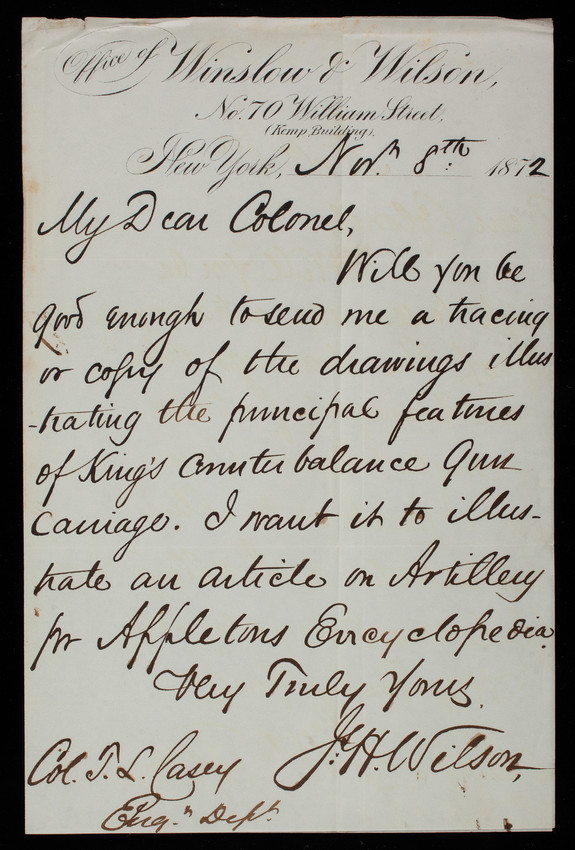 Office of Winslow & Wilson,
No. 70 William Street,
(Kemp Building).
New York, Novr. 8th 1872
My Dear Colonel,
Will you be
good enough to send me a tracing
or copy of the drawings illus
-trating the principal features
of King's counterbalance Gun
Carriage. I want it to illus-
trate an article on Artillery
for Appletons Encyclopedia.
Very Truly Yours,
J. H. Wilson,
Col. T. L. Casey
Engn. Dept.